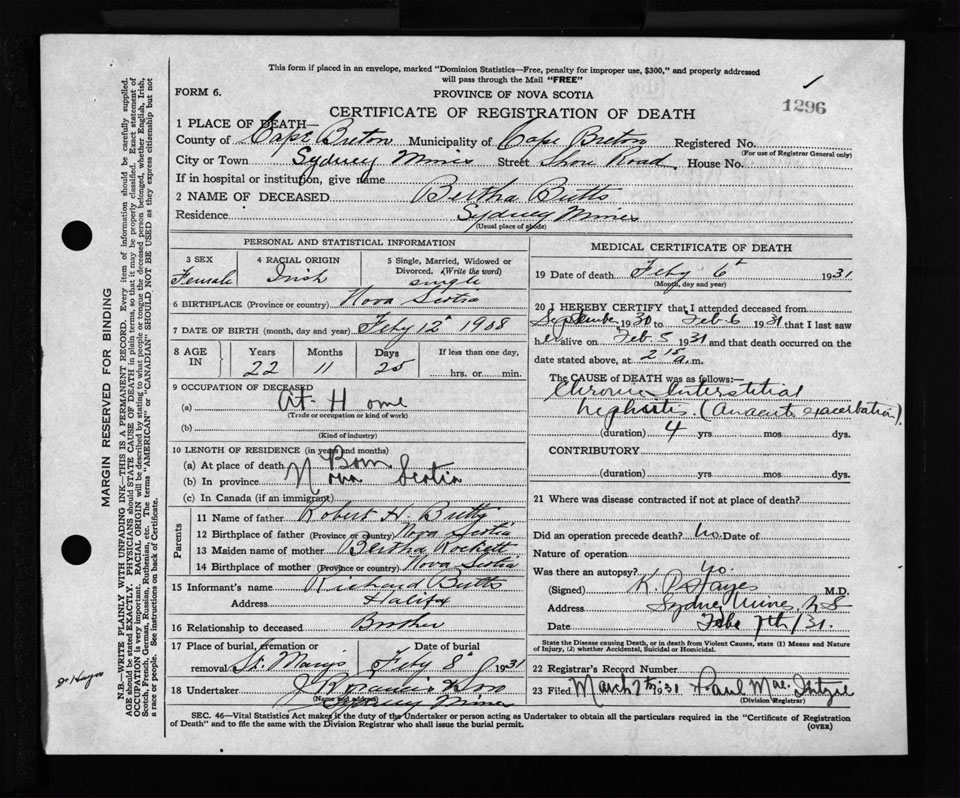 This form if placed in an envelope, marked "Dominion Statistics—Free, penalty for improper use, $300," and properly addressed
will pass through the Mail "FREE"
FORM 6.
PROVINCE OF NOVA SCOTIA
1296
CERTIFICATE OF REGISTRATION OF DEATH
1 PLACE OF DEATH—
County of Cape Breton Municipality of Cape Breton Registered No.
(For use of Registrar General only)
City or Town Sydney Mines Street Shore Road House No.
If in hospital or institution, give name
2 NAME OF DECEASED Bertha Butts
Residence Sydney Mines
(Usual place of abode)
PERSONAL AND STATISTICAL INFORMATION
3 SEX 4 RACIAL ORIGIN 5 Single, Married, Widowed or
Divorced. (Write the word)
Female Irish single
6 BIRTHPLACE (Province or country) Nova Scotia
7 DATE OF BIRTH (month, day and year) Feby 12" 1908
8 AGE IN Years Months Days If less than one day,
22 11 25 hrs. or min.
9 OCCUPATION OF DECEASED
(a) At Home
(Trade or occupation or kind of work)
(b)
(Kind of industry)
10 LENGTH OF RESIDENCE (in years and months)
(a) At place of death Born
(b) In province Nova Scotia
(c) In Canada (if an immigrant)
Parents
11 Name of father Robert H. Butts
12 Birthplace of father (Province or country) Nova Scotia
13 Maiden name of mother Bertha Rockett
14 Birthplace of mother (Province or country) Nova Scotia
15 Informant's name Richard Butts
Address Halifax
16 Relationship to deceased Brother
17 Place of burial, cremation or removal St. Mary's Date of burial Feby 8" 1931
18 Undertaker
(Name and address)
Sydney Mines
MEDICAL CERTIFICATE OF DEATH
19 Date of death Feby 6" 1931
(Month, day and year)
20 I HEREBY CERTIFY that I attended deceased from
September 1930 to Feb. 6 1931 that I last saw
her alive on Feb. 5 1931 and that death occurred on the
date stated above, at 2 15 a.m.
The CAUSE OF DEATH was as follows:
Chronic Interstitial
Nephritis. (An acute exacerbation).
(duration) 4 yrs. mos. dys.
CONTRIBUTORY
(duration) yrs. mos. dys.
21 Where was disease contracted if not at place of death?
Did an operation precede death? No. Date of
Nature of operation
Was there an autopsy? No.
(Signed) Hayes M.D.
Address Sydney Mines, N.S
Date Febr 7th/31.
State the Disease causing Death, or in death from Violent Causes, state (1) Means and Nature
of Injury, (2) whether Accidental, Suicidal or Homicidal.
22 Registrar's Record Number
23 Filed March 7th 1931 Paul
(Division Registrar)
SEC. 46—Vital Statistics Act makes it the duty of the Undertaker or person acting as Undertaker to obtain all the particulars required in the "Certificate of Registration
of Death" and to file the same with the Division Registrar who shall issue the burial permit.
(OVER)
MARGIN RESERVED FOR BINDING
N.B.—WRITE PLAINLY WITH UNFADING INK—THIS IS A PERMANENT RECORD. Every item of information should be carefully supplied.
AGE should be stated EXACTLY. PHYSICIANS should STATE CAUSE OF DEATH in plain terms, so that it may be properly classified. Exact statement of
OCCUPATION is very important. RACIAL ORIGIN will be described by stating to what people or tongue the deceased person belonged, whether English, Irish,
Scotch, French, German, Russian, Ruthenian, etc. The terms "AMERICAN" or "CANADIAN" SHOULD NOT BE USED as they express citizenship but not
a race or people. See instructions on back of Certificate.